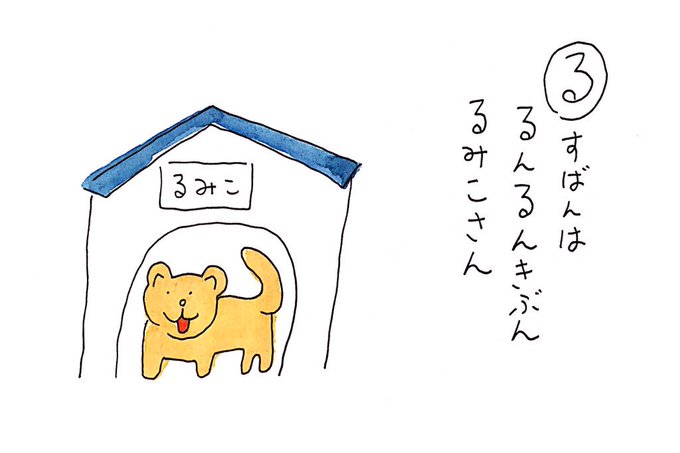 るすばんは
るんるんきぶん
るみこさん
るみこ